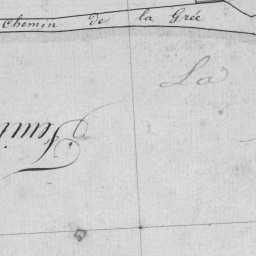 Chemin de la Grée
La